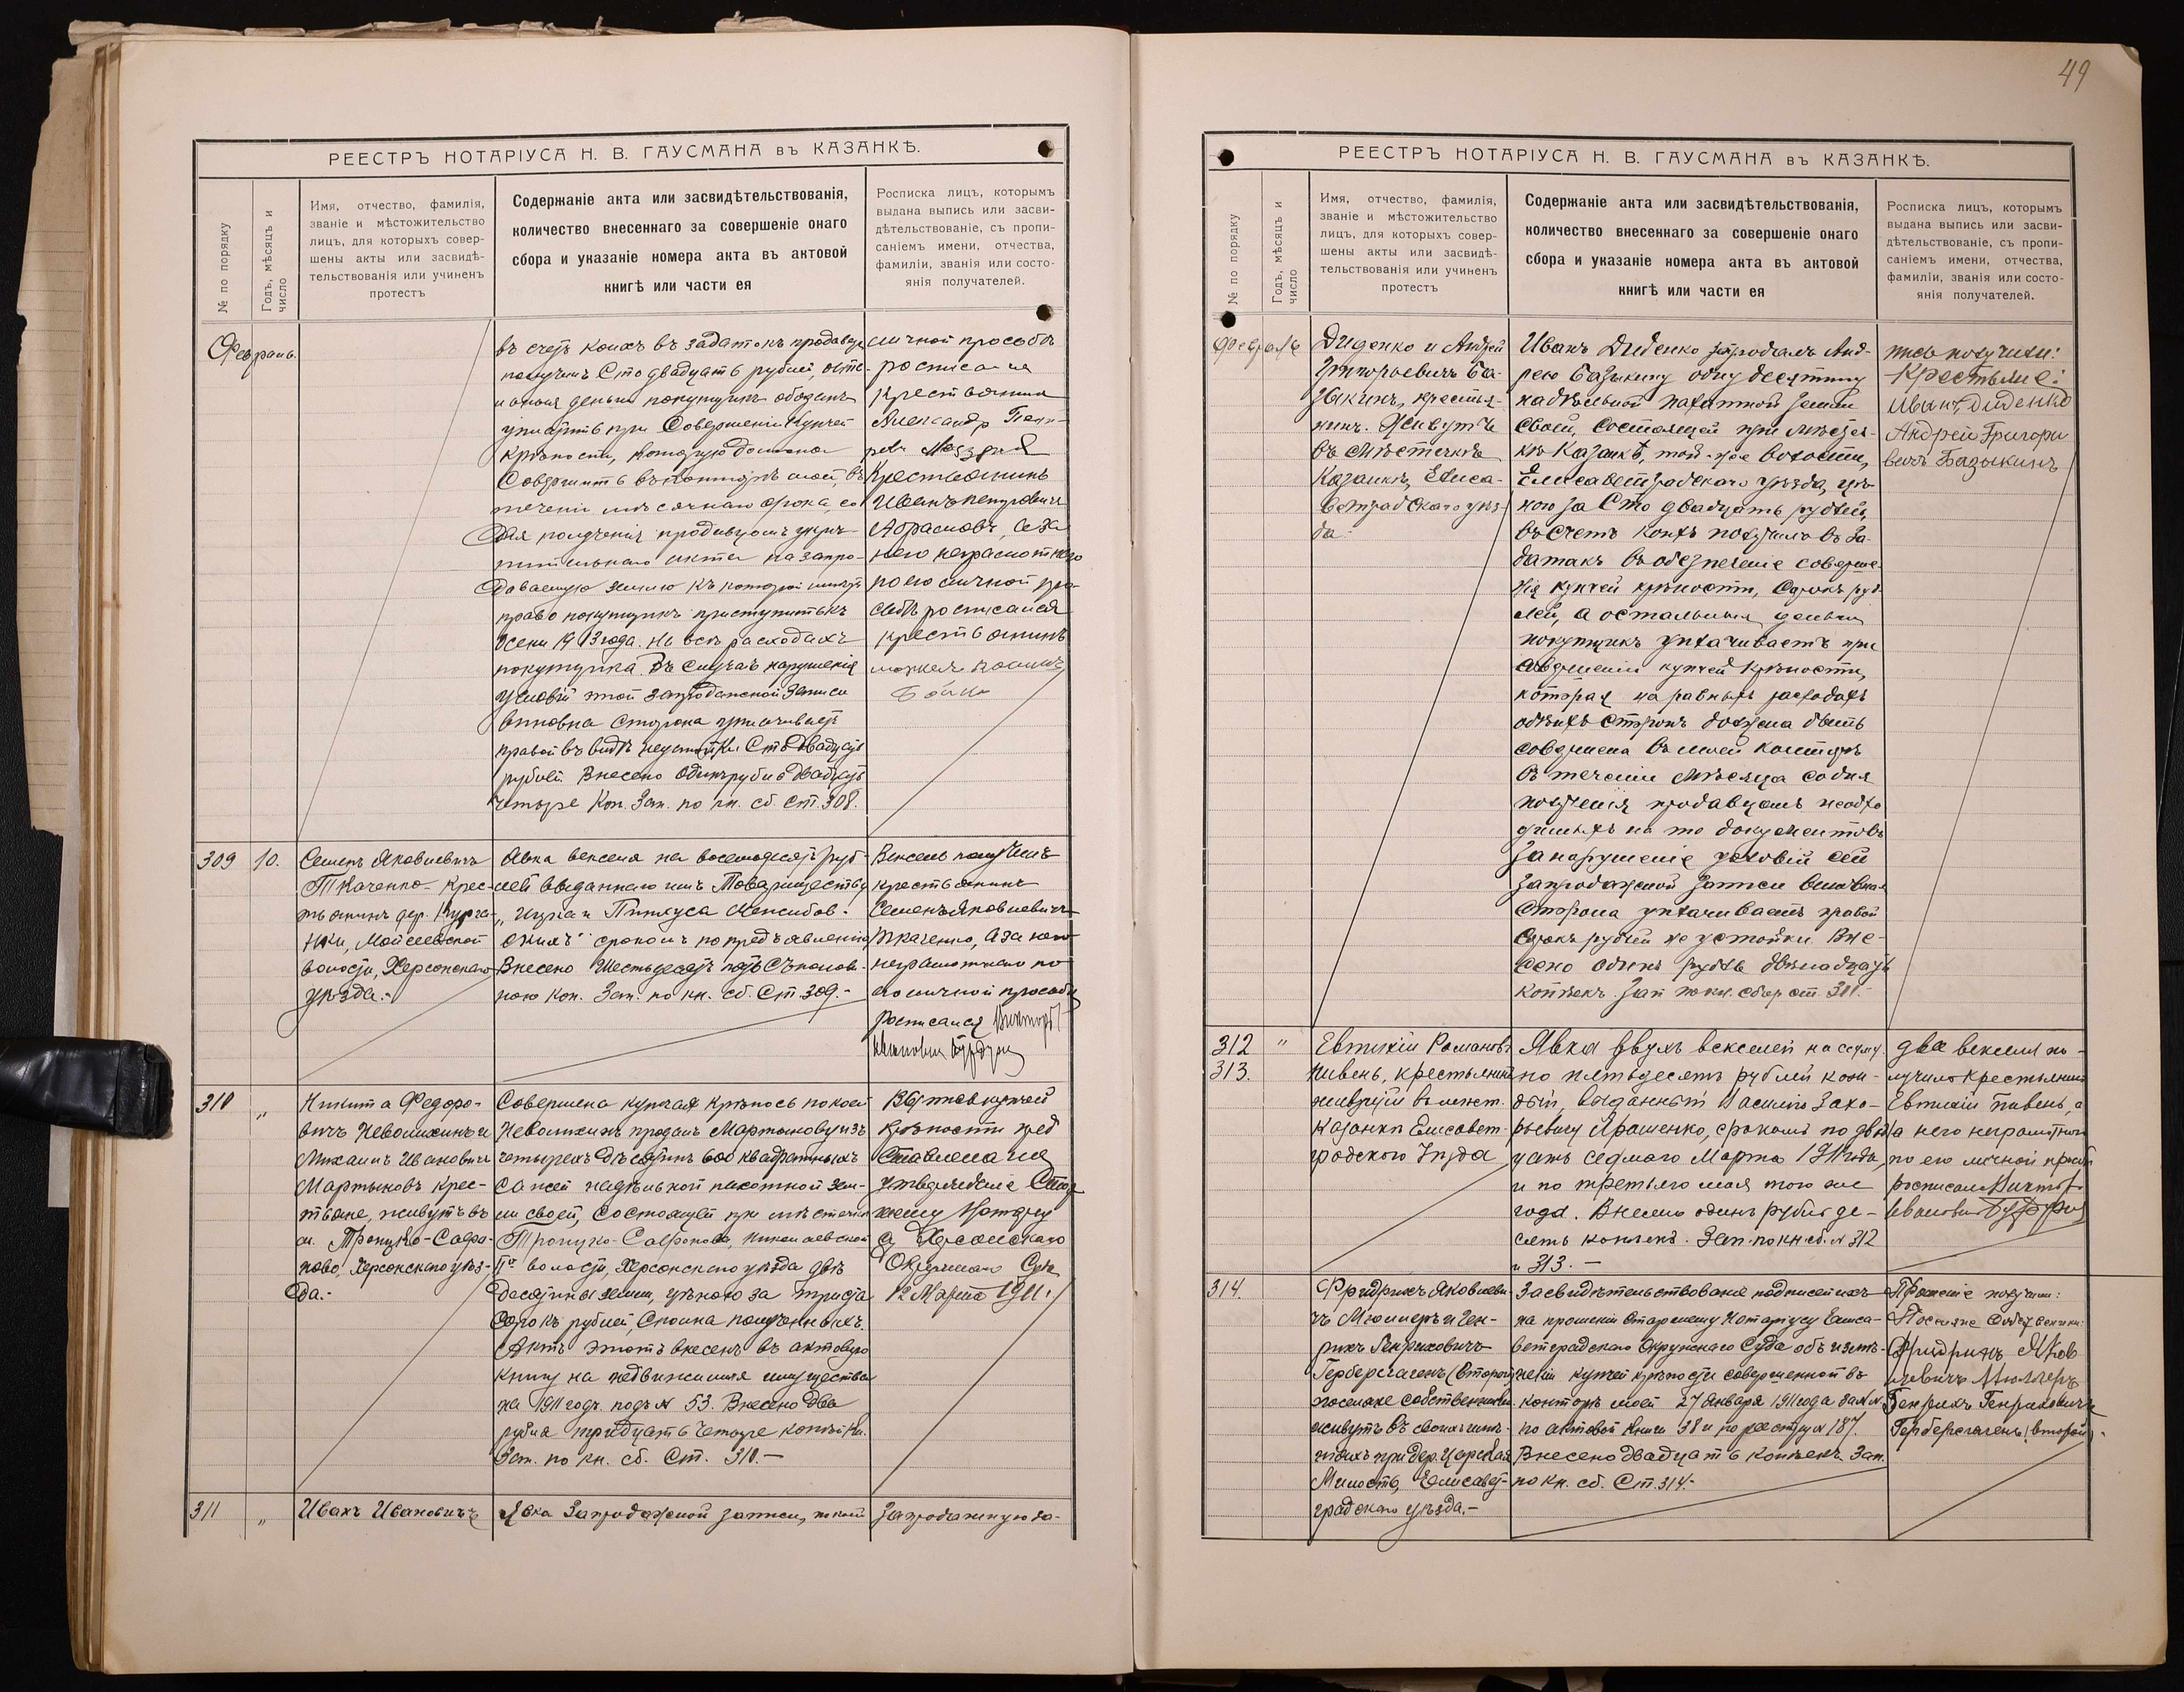 49
РЕЕСТРЪ НОТАРІУСА Н. В. ГАУСМАНА въ КАЗАНКѢ.
№ по порядку
Годъ, мѣсяцъ и
число
Имя, отчество, фамилія,
званіе и мѣстожительство
лицъ, для которыхъ совер-
шены акты или засвидѣ-
тельствованія или учиненъ
протестъ
Содержаніе акта или засвидѣтельствованія,
количество внесеннаго за совершеніе онаго
сбора и указаніе номера акта въ актовой
книгѣ или части ея
Росписка лицъ, которымъ
выдана выпись или засви-
дѣтельствованіе, съ пропи-
саніемъ имени, отчества,
фамиліи, званія или состо-
янія получателей.
Февраль
въ счетъ коихъ въ задатокъ продавецъ
получилъ Сто двадцать рублей, осталь-
деньги покупщикъ обязанъ
уплатить при Совершеніи Купчей
Крѣпости, которую должна
Совершить въ конторѣ моей, въ
теченіи мѣсячнаго срока, со
дня полученія продавцомъ укрѣ-
пительнаго акта на запро-
даваемую землю къ которой имѣетъ
право покупщикъ приступить къ
осени 1913 года. На всѣ расходахъ
покупщика. Въ случаѣ нарушенія
условій этой запродажной записи
виновна сторона уплачиваетъ
правой въ видѣ неустойки Сто двадцать
рублей. Внесено Одинъ рубль двадцать
четыре Коп. Зап. по кн. сб. Ст. 308.
личной просьбѣ
росписался
Крестьянинъ
Александръ
Крестьянинъ
Иванъ Петровичъ
Абрасмовъ, а за
него неграмотнаго
по его личной про-
сьбѣ росписался
крестьянинъ
Бойко
309
10.
Семенъ Яковлевичъ
Ткаченко - Крес-
тьянинъ дер. Курга-
нки, Моисеевской
волости, Херсонскаго
уѣзда.-
Явка векселя на восемьдесятъ руб-
лей выданнаго имъ Товариществу
„Ицка и Пинкуса
скихъ" срокомъ по предъявленію
Внесено Шестьдесятъ пять съ полови-
ною коп. Зап. по кн. сб. Ст. 309.-
Вексель получилъ
крестьянинъ
Семенъ Яковлевичъ
Ткаченко, а за него
неграмотнаго по
его личной просьбѣ
росписался Викторъ
Ивановичъ
310
„
Никита Федоро-
вичъ Неволихинъ и
Михаилъ Ивановичъ
Мартыновъ Крес-
тьяне, живутъ въ
м. Троицко-Сафо-
ново, Херсонскаго уѣз-
да.-
Совершена купчая Крѣпось по коей
Неволихинъ продалъ Мартынову изъ
четырехъ десятинъ 600 квадратныхъ
сажей надѣльной пахотной зем-
ли своей, состоящей при мѣстечкѣ
Троицко-Сафоново, Николаевской
IIй волости, Херсонскаго уѣзда двѣ
десятины земли, цѣною за триста
Сорокъ рублей, Сполна полученныхъ.
Актъ этотъ внесенъ въ актовую
книгу на недвижимыя имущества
на 1911 годъ подъ № 53. Внесено Два
рубля тридцать четыре копѣйки.
Зап. по кн. сб. Ст. 310.-
Выпись купчей
крѣпости пред
ставлена на
утвержденіе Стар
шему Нотаріу
су Херсонскаго
Окружнаго Суда
12 Марта 1911 г.
311
„
Иванъ Ивановичъ
Явка Запродажной записи, по коей
Запродажную за-
РЕЕСТРЪ НОТАРІУСА Н. В. ГАУСМАНА въ КАЗАНКѢ.
№ по порядку
Годъ, мѣсяцъ и
число
Имя, отчество, фамилія,
званіе и мѣстожительство
лицъ, для которыхъ совер-
шены акты или засвидѣ-
тельствованія или учиненъ
протестъ
Содержаніе акта или засвидѣтельствованія,
количество внесеннаго за совершеніе онаго
сбора и указаніе номера акта въ актовой
книгѣ или части ея
Росписка лицъ, которымъ
выдана выпись или засви-
дѣтельствованіе, съ пропи-
саніемъ имени, отчества,
фамиліи, званія или состо-
янія получателей.
Февраль
Диденко и Андрей
Григорьевичъ Ба-
зыкинъ, крестья-
нинъ. Живутъ
въ мѣстечкѣ
Казанкѣ, Елиса-
ветградскаго уѣз-
да
Иванъ Диденко запродалъ Анд-
рею Базыкину одну десятину
надѣльной пахатной земли
своей, состоящей при мѣстеч-
кѣ Казанкѣ, той-же волости,
Елисаветградскаго уѣзда, цѣ-
ною за Сто двадцать рублей,
въ счетъ коихъ получилъ въ за-
датакъ въ обезпеченіе соверше-
нія купчей крѣпости, Сорокъ руб-
лей, а остальныя деньги
покупщикъ уплачиваетъ при
совершеніи купчей крѣпости,
которая на равныхъ расходахъ
обѣихъ сторонъ должна быть
совершена въ моей конторѣ
въ теченіи мѣсяца со дня
полученія продавцомъ необхо
димыхъ на то документовъ
За нарушеніе условій сей
запродажной записи виновная
Сторона уплачиваетъ правой
Сорокъ рублей неустойки. Вне-
сено одинъ рубль двѣнадцать
копѣекъ. Зап по кн. сбор ст. 311.-
пись получили:
Крестьяне:
Иванъ Диденко
Андрей Григори
вичъ Базыкинъ
312
313.
"
Евтихій Романовъ
Пивень, крестьянинъ
живущій въ мѣст.
Казанки Елисавет-
градского Уѣзда
Явка двухъ векселей на сумму
по пятьдесятъ рублей каж-
дый, выданный Василію Заха-
рьевичу Ярашенко, срокомъ по двад-
цать седмаго Марта 1911 года,
и по третьего мая того же
года. Внесено одинъ рубль де-
сять копѣекъ. Зап. по кн. сб. № 312
и 313.-
два векселя по-
лучилъ Крестьянинъ
Евтихій Пивень, а
за него неграмотнаго
по его личной просьбѣ
росписался Викторъ
Ивановичъ
314.
Фридрихъ Яковлеви-
чъ Мюллеръ и Ген-
рихъ Генриховичъ
Герберсгагенъ (второй)
поселяне собственники
живутъ въ своихъ имѣ-
ніяхъ при дер. Царская
Милость, Елисавет-
градскаго уѣзда.-
Засвидѣтельствованіе подписей ихъ
на прошеніи Старшему Нотаріусу Елиса-
ветградскаго Окружнаго Суда объ изъя-
неніи купчей крѣпости совершенной въ
конторѣ моей 27 Января 1911 года за №№
по актовой книги 38 и по реестру № 187.
Внесено двадцать копѣекъ. Зап.
по кн. сб. Ст. 314.-
Прошеніе получили:
Поселяне Собственники:
Фридрихъ Яков
левичъ Мюллеръ
Генрихъ Генриховичъ
Герберсгагенъ (второй).